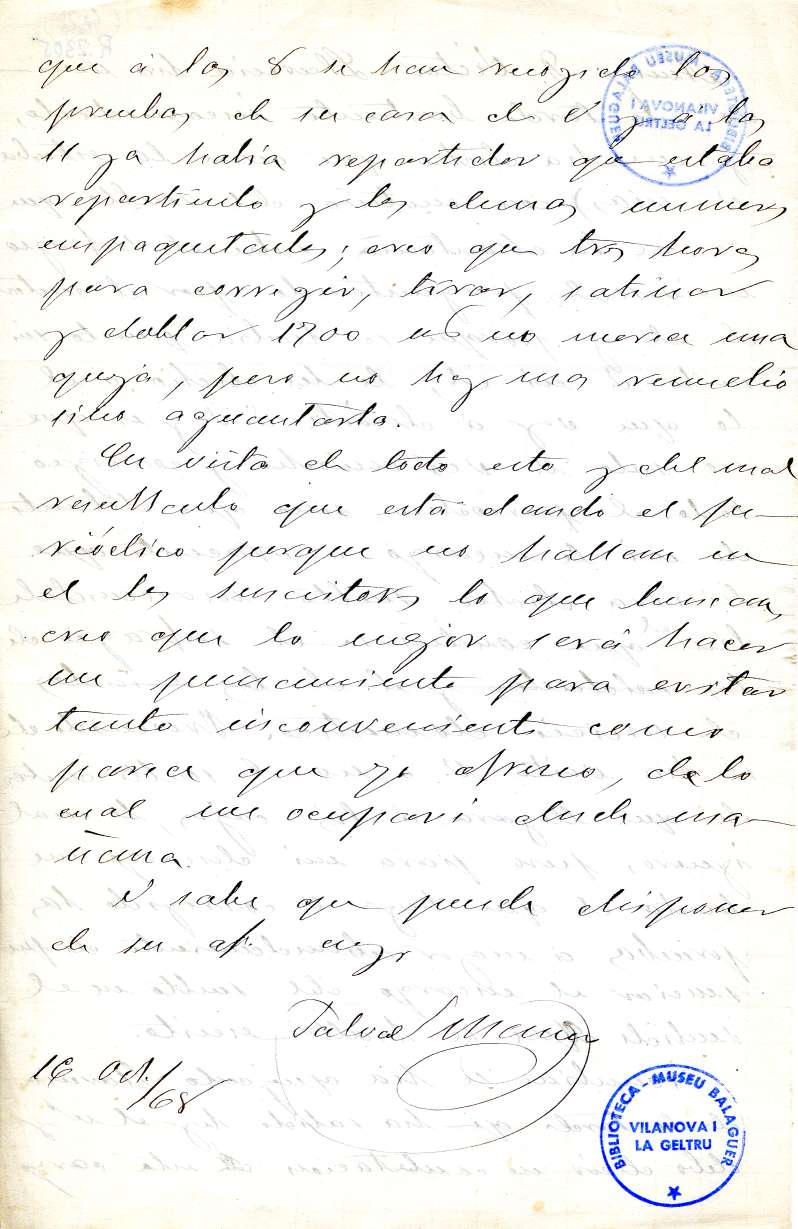 que á las 8 se han recogido las
pruebas de su casa de V y a las
11 ya había repartidor que estaba
repartiendo y los demas numeros
empaquetados; creo que tres horas
para corregir, tirar, satinar
y doblar 1700 nos no merece una
queja, pero no hay mas remedio
sino aguantarla.
En vista de todo esto y del mal
resultado que está dando el pe-
riódico porque no hallan en
el los suscritores lo que buscan,
creo que lo mejor será hacer
un pensamiento para evitar
tanto inconveniente como
parece que yo ofrezco, de lo
cual me ocuparé desde ma-
ñana.
V sabe que puede disponer
de su af.
Salvad Manero
16 Oct./68
BIBLIOTECA - MUSEU BALAGUER
VILANOVA I
LA GELTRU